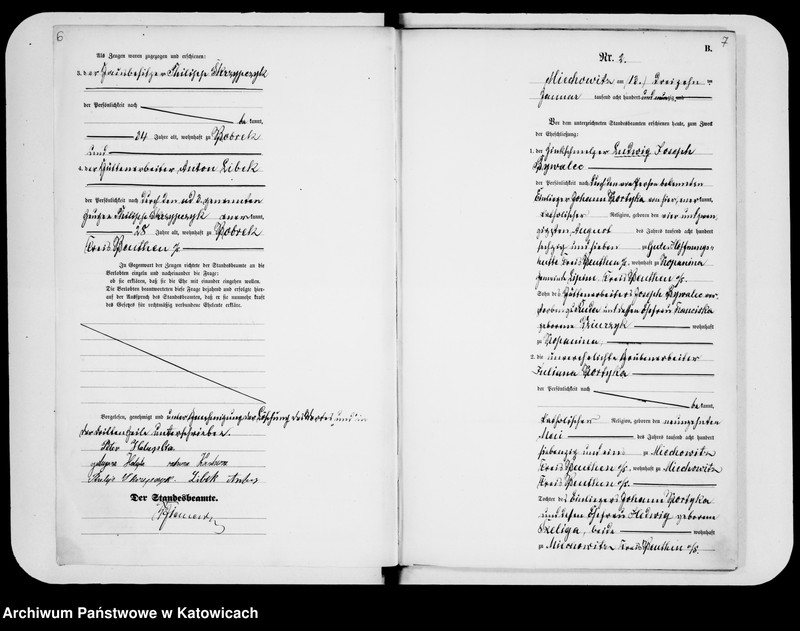 6
Als Zeugen waren zugezogen und erschienen:
3. der Philipp Skrzypczyk
der Persönlichkeit nach
be kannt,
24 Jahre alt, wohnhaft zu Bobrek
und
4. der Hüttenarbeiter Anton Libek
der Persönlichkeit nach durch den ad 3. genannten
Zeugen Philipp Skrzypczyk anerkannt,
28 Jahre alt, wohnhaft zu Bobrek
Kreis Beuthen
In Gegenwart der Zeugen richtete der Standesbeamte an die
Verlobten einzeln und nacheinander die Frage:
ob sie erklären, daß sie die Ehe mit einander eingehen wollen.
Die Verlobten beantworteten diese Frage bejahend und erfolgte hier-
auf der Ausspruch des Standesbeamten, daß er sie nunmehr kraft
des Gesetzes für rechtmäßig verbundene Eheleute erkläre.
Vorgelesen, genehmigt und unter Genehmigung der Löschung des Wortes „und" in
der dritten Zeile unterschrieben.
Libek Anton
Der Standesbeamte.
7
B.
Nr. 2.
Miechowitz am (13.) dreizehn ten
Januar tausend acht hundert neunzig und
Vor dem unterzeichneten Standesbeamten erschienen heute, zum Zweck
der Eheschließung:
1. der Zinkschmelzer Ludwig Joseph
Bywalec
der Persönlichkeit nach durch den von Person bekannten
Einlieger Johann Kortyka von hier, anerkannt,
katholischer Religion, geboren den vier und zwan
zigsten August des Jahres tausend acht hundert
sechzig und sieben zu Gute Hoffnungs
hütte Kreis Beuthen, wohnhaft zu Kopanina
Gemeinde Lipine, Kreis Beuthen O/S.
Sohn des Hüttenarbeiters Joseph Bywalec ver
storben zu Ruda und dessen Ehefrau Franciska
geborene wohnhaft
zu Kopanina
2. die unverehelichte Grubenarbeiter
Juliana Kortyka
der Persönlichkeit nach
be kannt,
katholischer Religion, geboren den neunzehnten
Mai des Jahres tausend acht hundert
siebenzig und eins zu Miechowitz
Kreis Beuthen O/S., wohnhaft zu Miechowitz
Kreis Beuthen O/S.
Tochter des Einliegers Johann Kortyka
und dessen Ehefrau Hedwig geborene
Szeliga, beide wohnhaft
zu Miechowitz Kreis Beuthen O/S.
Archiwum Państwowe w Katowicach